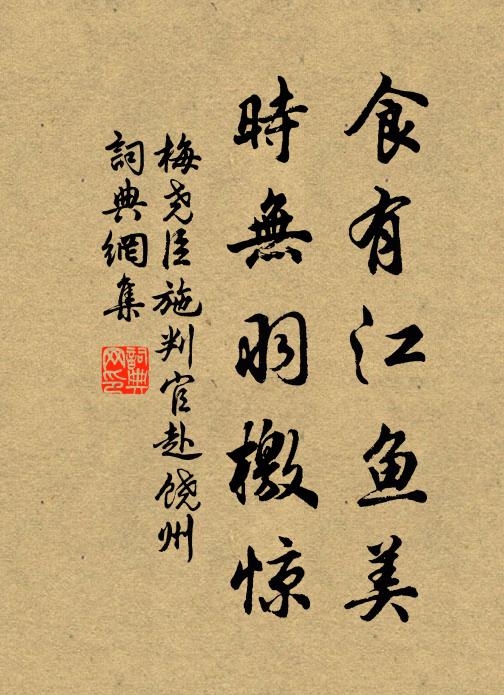 食有江鱼美
時無羽檄惊
梅尧臣施判官赴饶州
詞典網集
詞典网印